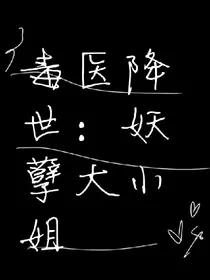 毒医降
世：妖
孽大小
姐